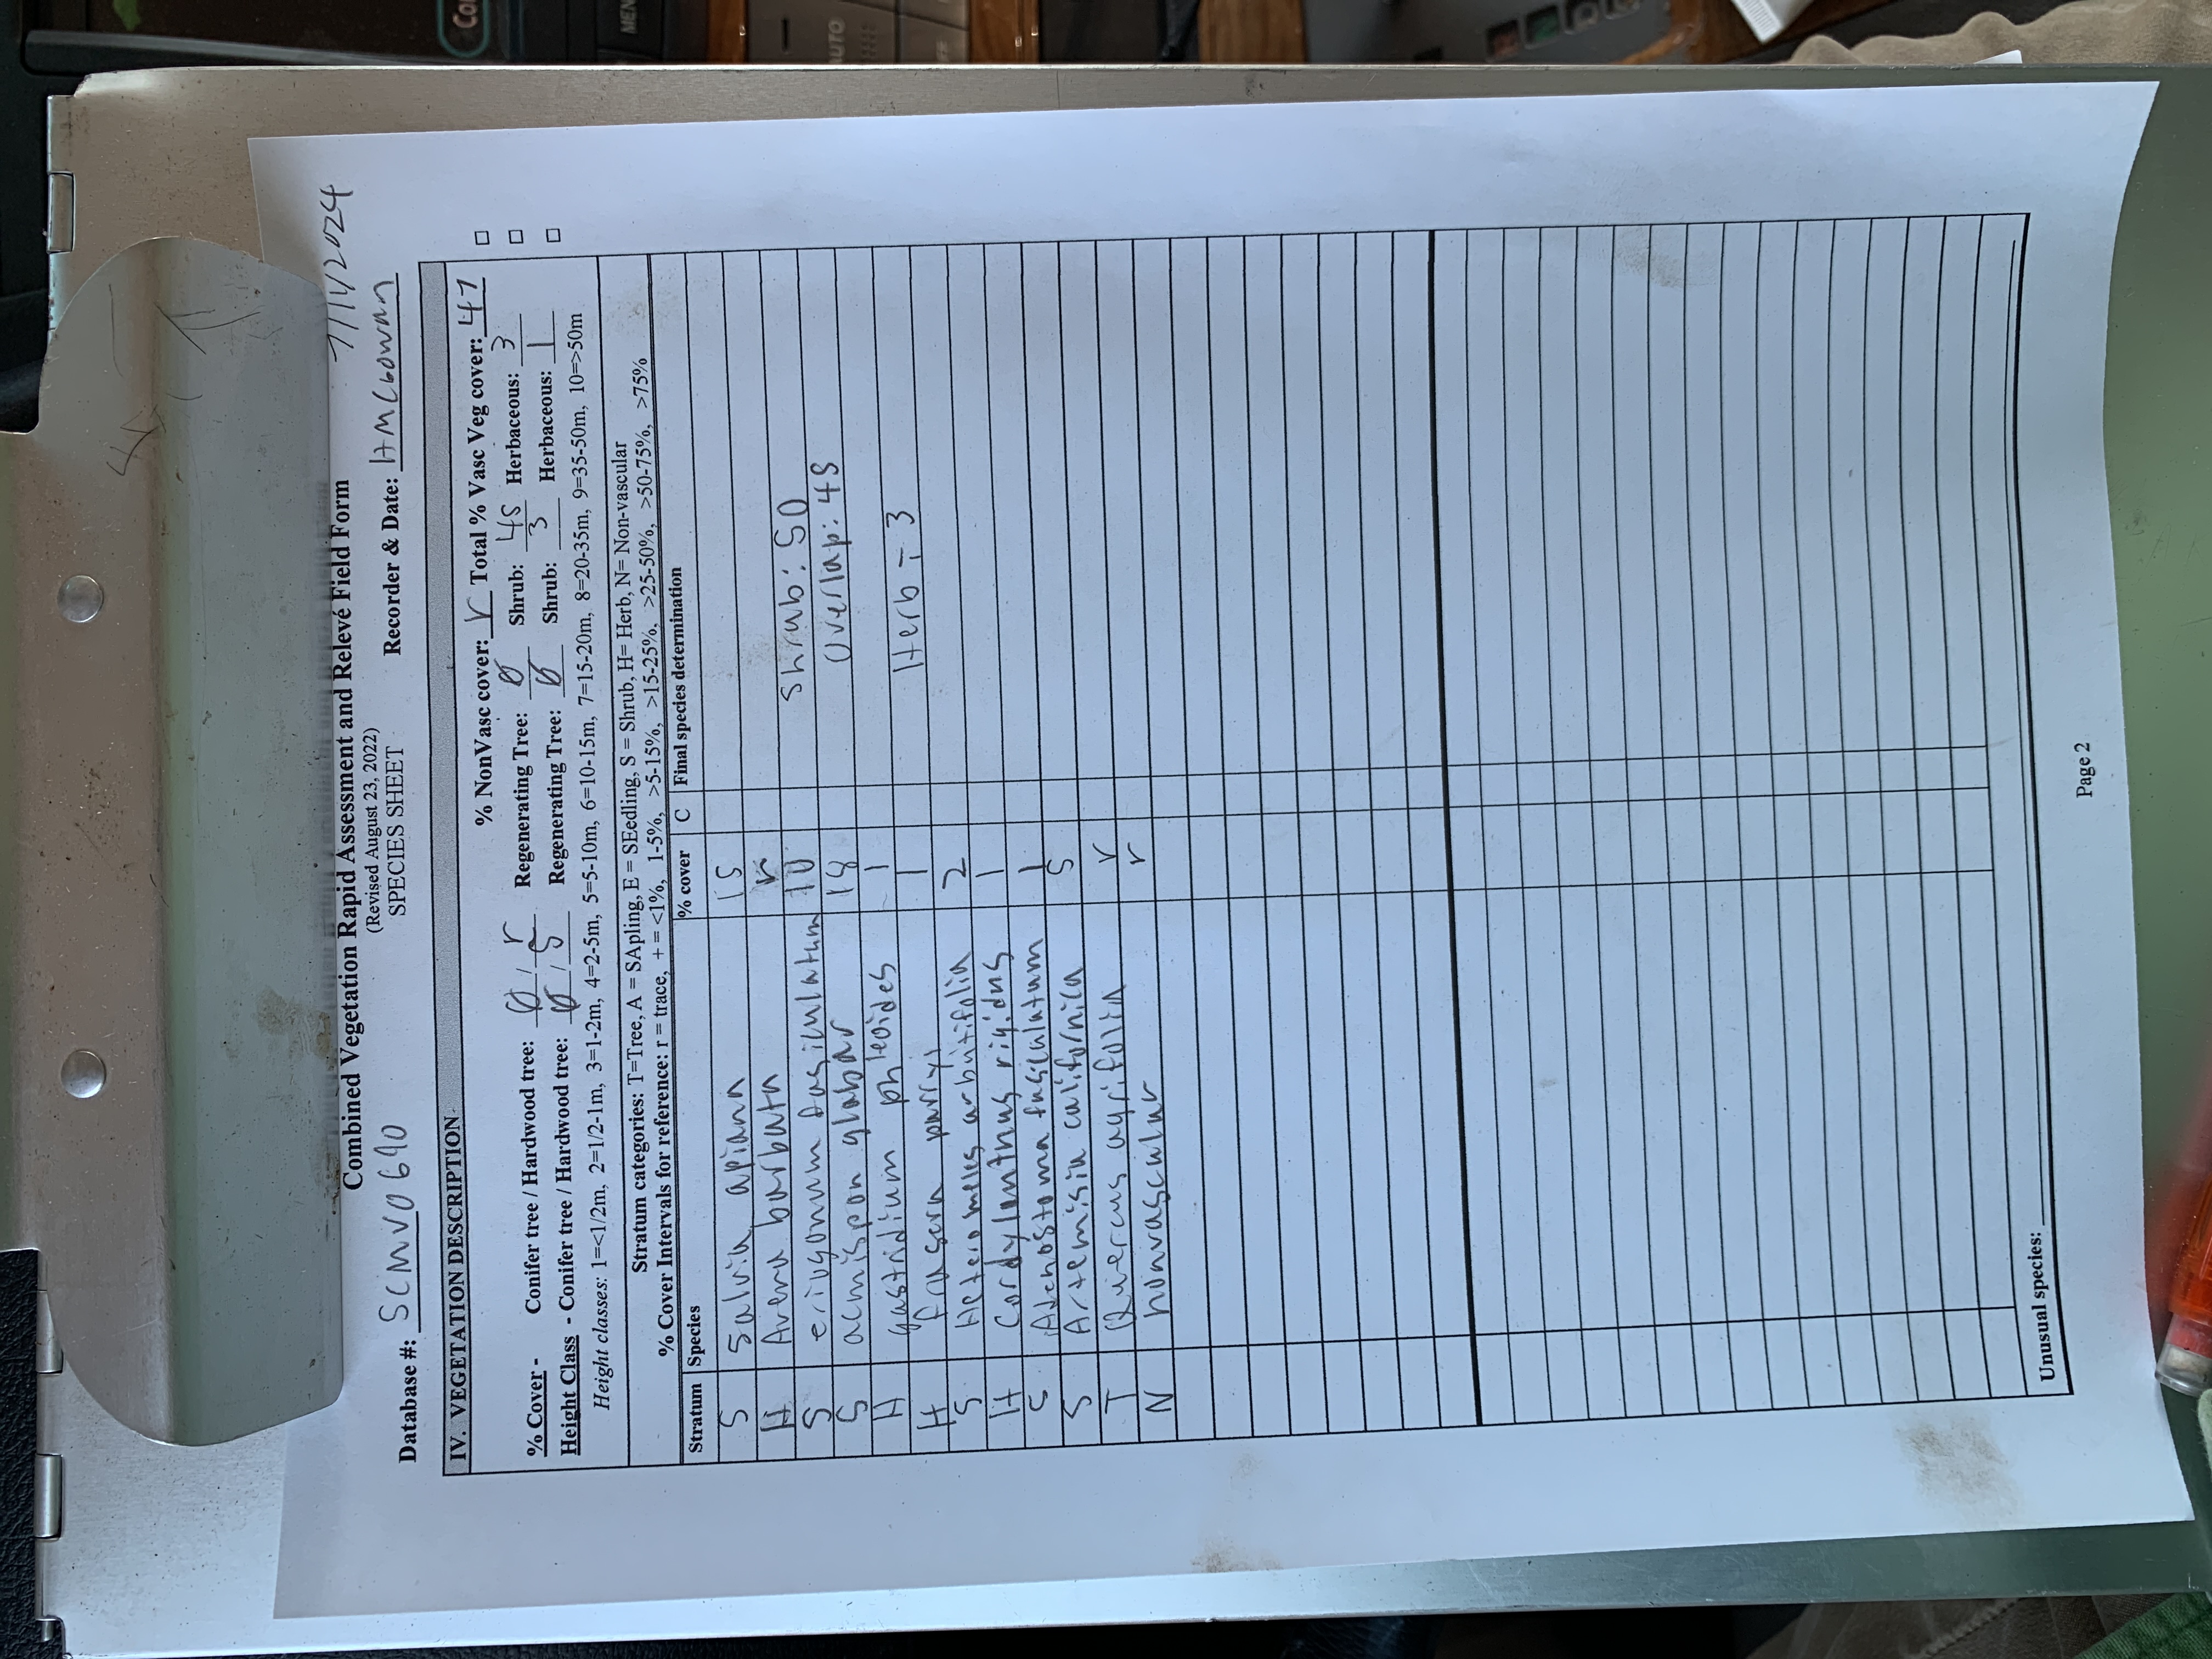 Combined Vegetation Rapid Assessment and Relevé Field Form
7/14/2024
(Revised August 23, 2022)
SPECIES SHEET
Database #: SCMV0690 Recorder & Date: HMcGowan
IV. VEGETATION DESCRIPTION
% NonVasc cover: r Total % Vasc Veg cover: 47 □
% Cover - Conifer tree / Hardwood tree: 0 / r Regenerating Tree: 0 Shrub: 45 Herbaceous: 3 □
Height Class - Conifer tree / Hardwood tree: 0 / 5 Regenerating Tree: 0 Shrub: 3 Herbaceous: 1 □
Height classes: 1=<1/2m, 2=1/2-1m, 3=1-2m, 4=2-5m, 5=5-10m, 6=10-15m, 7=15-20m, 8=20-35m, 9=35-50m, 10=>50m
Stratum categories: T=Tree, A = SApling, E = SEedling, S = Shrub, H= Herb, N= Non-vascular
% Cover Intervals for reference: r = trace, + = <1%, 1-5%, >5-15%, >15-25%, >25-50%, >50-75%, >75%
Stratum Species % cover C Final species determination
S Salvia apiana 15
H Avena barbata r
S eriogonum fasiculatum 10 Shrub: 50
S acmispon glabar 18 Overlap: 45
H gastridium phleoides 1
H frasera parryi 1 Herb - 3
S Heteromeles arbutifolia 2
H Cordylanthus rigidus 1
S Adenostoma fasculatum 1
S Artemisia californica 5
T Quercus agrifolia r
N nonvascular r
Unusual species:
Page 2